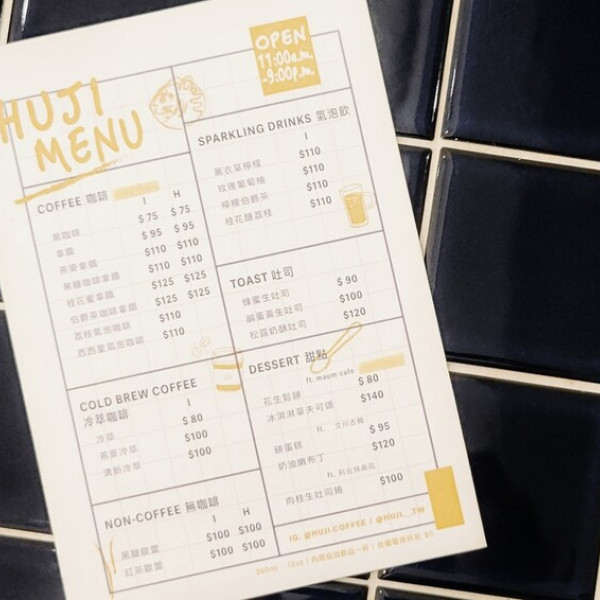 HUJI
MENU
OPEN
11:00a.m.
-9:00p.m.
COFFEE 咖啡
I H
黑咖啡 $75 $75
拿鐵 $95 $95
燕麥拿鐵 $110 $110
黑糖咖啡拿鐵 $110 $110
桂花蜜拿鐵 $125 $125
伯爵茶咖啡拿鐵 $125 $125
荔枝氣泡咖啡 $110
西西里氣泡咖啡 $110
COLD BREW COFFEE
冷萃咖啡
I
冷萃 $80
燕麥冷萃 $100
冷萃 $100
NON-COFFEE 無咖啡
I H
黑糖歐蕾 $100 $100
紅茶歐蕾 $100 $100
SPARKLING DRINKS 氣泡飲
I
薰衣草檸檬 $110
玫瑰葡萄柚 $110
檸檬伯爵茶 $110
桂花釀荔枝 $110
TOAST 吐司
蜂蜜生吐司 $90
鹹蛋黃生吐司 $100
松露奶酥吐司 $120
DESSERT 甜點
ft. maum cafe
花生鬆餅 $80
冰淇淋華夫可頌 $140
ft.
磅蛋糕 $95
奶油嫩布丁 $120
ft.
肉桂生吐司捲 $100
IG. @HUJI.COFFEE / @HUJI._.TW
360ml - 12oz